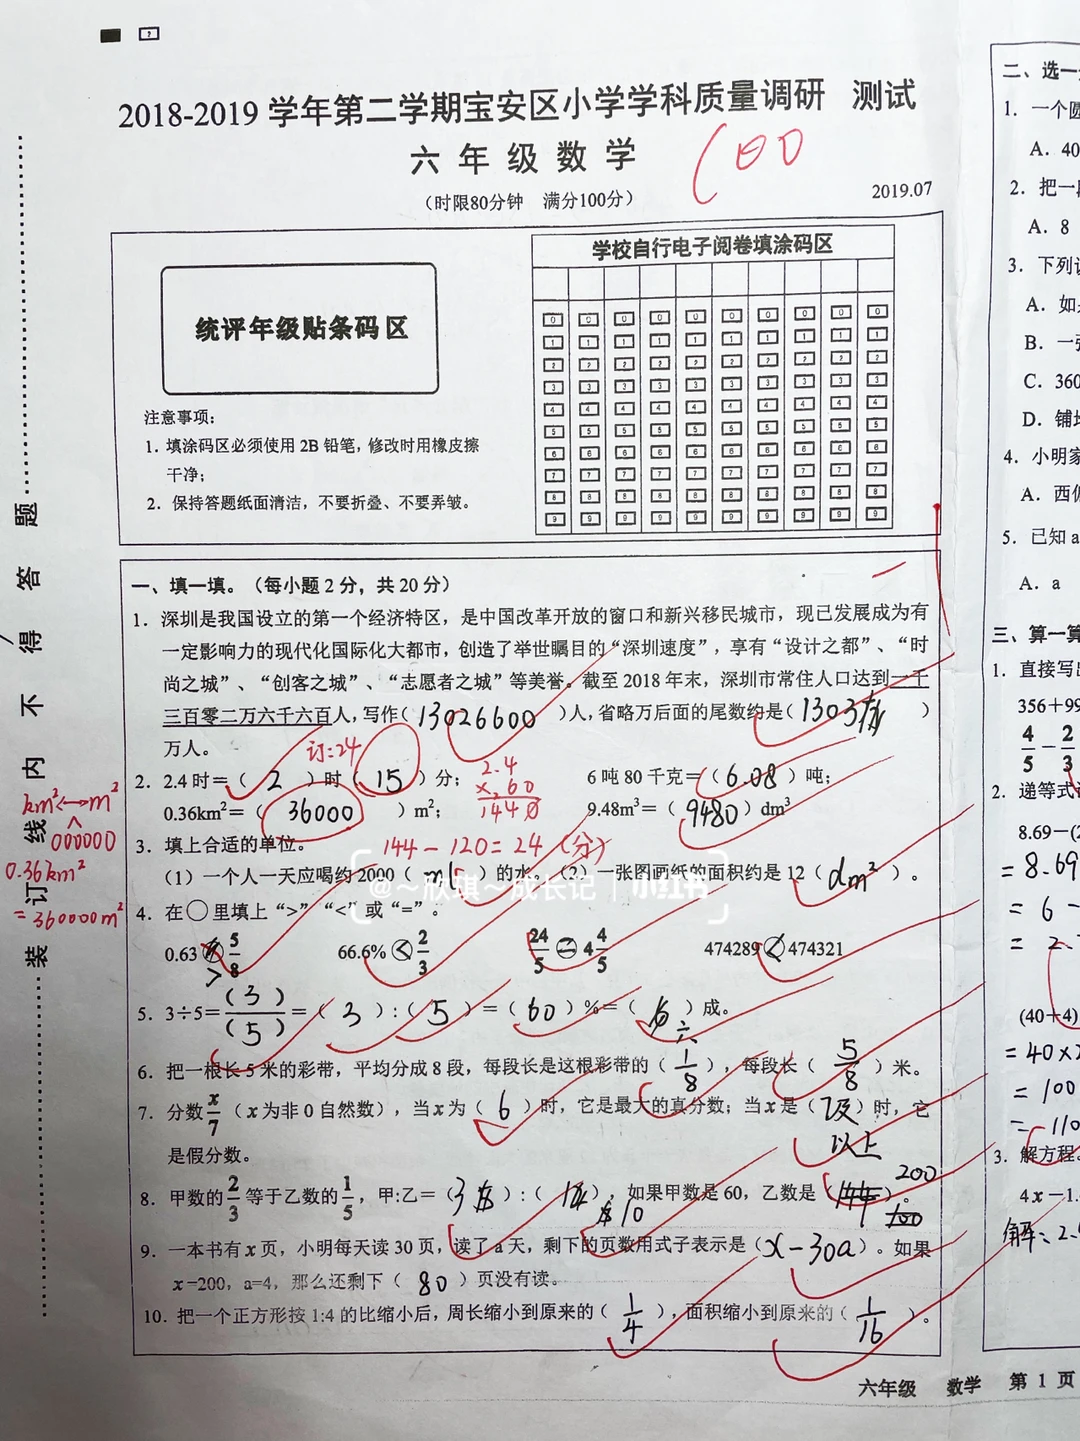 2018-2019 学年第二学期宝安区小学学科质量调研 测试
六 年 级 数 学
100
（时限80分钟 满分100分）
2019.07
统评年级贴条码区
学校自行电子阅卷填涂码区
0 0 0 0 0 0 0 0 0 0
1 1 1 1 1 1 1 1 1 1
2 2 2 2 2 2 2 2 2 2
3 3 3 3 3 3 3 3 3 3
4 4 4 4 4 4 4 4 4 4
5 5 5 5 5 5 5 5 5 5
6 6 6 6 6 6 6 6 6 6
7 7 7 7 7 7 7 7 7 7
8 8 8 8 8 8 8 8 8 8
9 9 9 9 9 9 9 9 9 9
注意事项：
1. 填涂码区必须使用 2B 铅笔，修改时用橡皮擦
干净；
2. 保持答题纸面清洁，不要折叠、不要弄皱。
装 订 线 内 不 得 答 题
一、填一填。（每小题 2 分，共 20 分）
1. 深圳是我国设立的第一个经济特区，是中国改革开放的窗口和新兴移民城市，现已发展成为有
一定影响力的现代化国际化大都市，创造了举世瞩目的“深圳速度”，享有“设计之都”、“时
尚之城”、“创客之城”、“志愿者之城”等美誉。截至 2018 年末，深圳市常住人口达到一千
三百零二万六千六百人，写作（ 13026600 ）人，省略万后面的尾数约是（ 1303 ）
万人。
订:24
2. 2.4 时＝（ 2 ）时（ 15 ）分； 6 吨 80 千克＝（ 6.08 ）吨；
2.4
×60
1440
0.36km²＝（ 36000 ）m²； 9.48m³＝（ 9480 ）dm³
km²↔m²
000000
0.36km²
= 360000m²
144－120＝24（分）
3. 填上合适的单位。
（1）一个人一天应喝约 2000（ ml ）的水。（2）一张图画纸的面积约是 12（ dm² ）。
@～欣琪～成长记 小红书
4. 在○里填上“>”“<”或“=”。
0.63 > 5/8 66.6% < 2/3 24/5 = 4 4/5 474289 < 474321
5. 3÷5＝(3)/(5)＝（ 3 ）:（ 5 ）＝（ 60 ）%＝（ 六 ）成。
6. 把一根长 5 米的彩带，平均分成 8 段，每段长是这根彩带的（ 1/8 ），每段长（ 5/8 ）米。
7. 分数 x/7（x 为非 0 自然数），当 x 为（ 6 ）时，它是最大的真分数；当 x 是（ 7及以上 ）时，它
是假分数。
8. 甲数的 2/3 等于乙数的 1/5，甲:乙＝（ 3 ）:（ 10 ），如果甲数是 60，乙数是（ 200 ）。
9. 一本书有 x 页，小明每天读 30 页，读了 a 天，剩下的页数用式子表示是（ x－30a ）。如果
x=200，a=4，那么还剩下（ 80 ）页没有读。
10. 把一个正方形按 1:4 的比缩小后，周长缩小到原来的（ 1/4 ），面积缩小到原来的（ 1/16 ）。
六年级 数学 第 1 页
二、选一
1. 一个圆
A. 40
2. 把一
A. 8
3. 下列
A. 如
B. 一
C. 360
D. 铺
4. 小明家
A. 西
5. 已知 a
A. a
三、算一算
1. 直接写出
356+99
4/5 － 2/3
2. 递等式
8.69－(2
= 8.69
= 6 －
= 2.
(40+4)
= 40×
= 100
= 110
3. 解方程。
4x－1.
解:2.